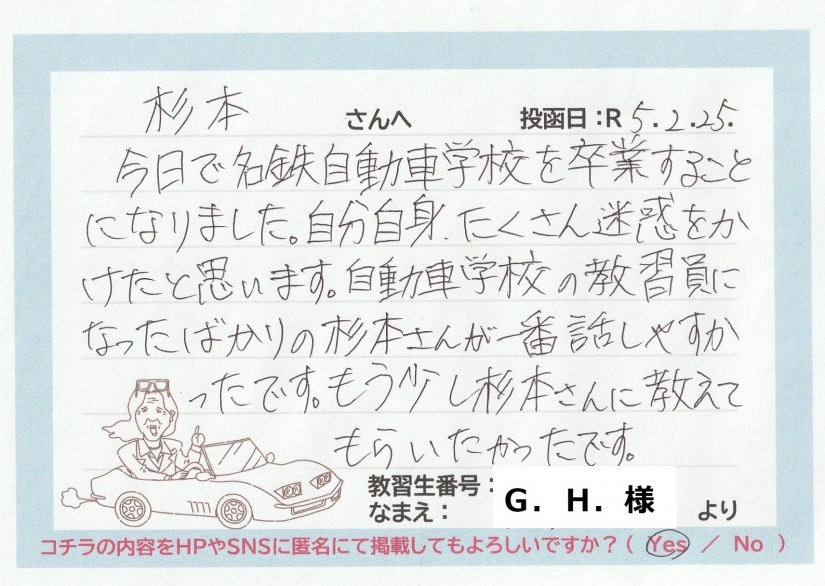 杉本 さんへ 投函日：R5.2.25.
今日で名鉄自動車学校を卒業すること
になりました。自分自身、たくさん迷惑をか
けたと思います。自動車学校の教習員に
なったばかりの杉本さんが一番話しやすか
ったです。もう少し杉本さんに教えて
もらいたかったです。
教習生番号：
なまえ： G. H. 様 より
コチラの内容をHPやSNSに匿名にて掲載してもよろしいですか？( Yes ／ No )